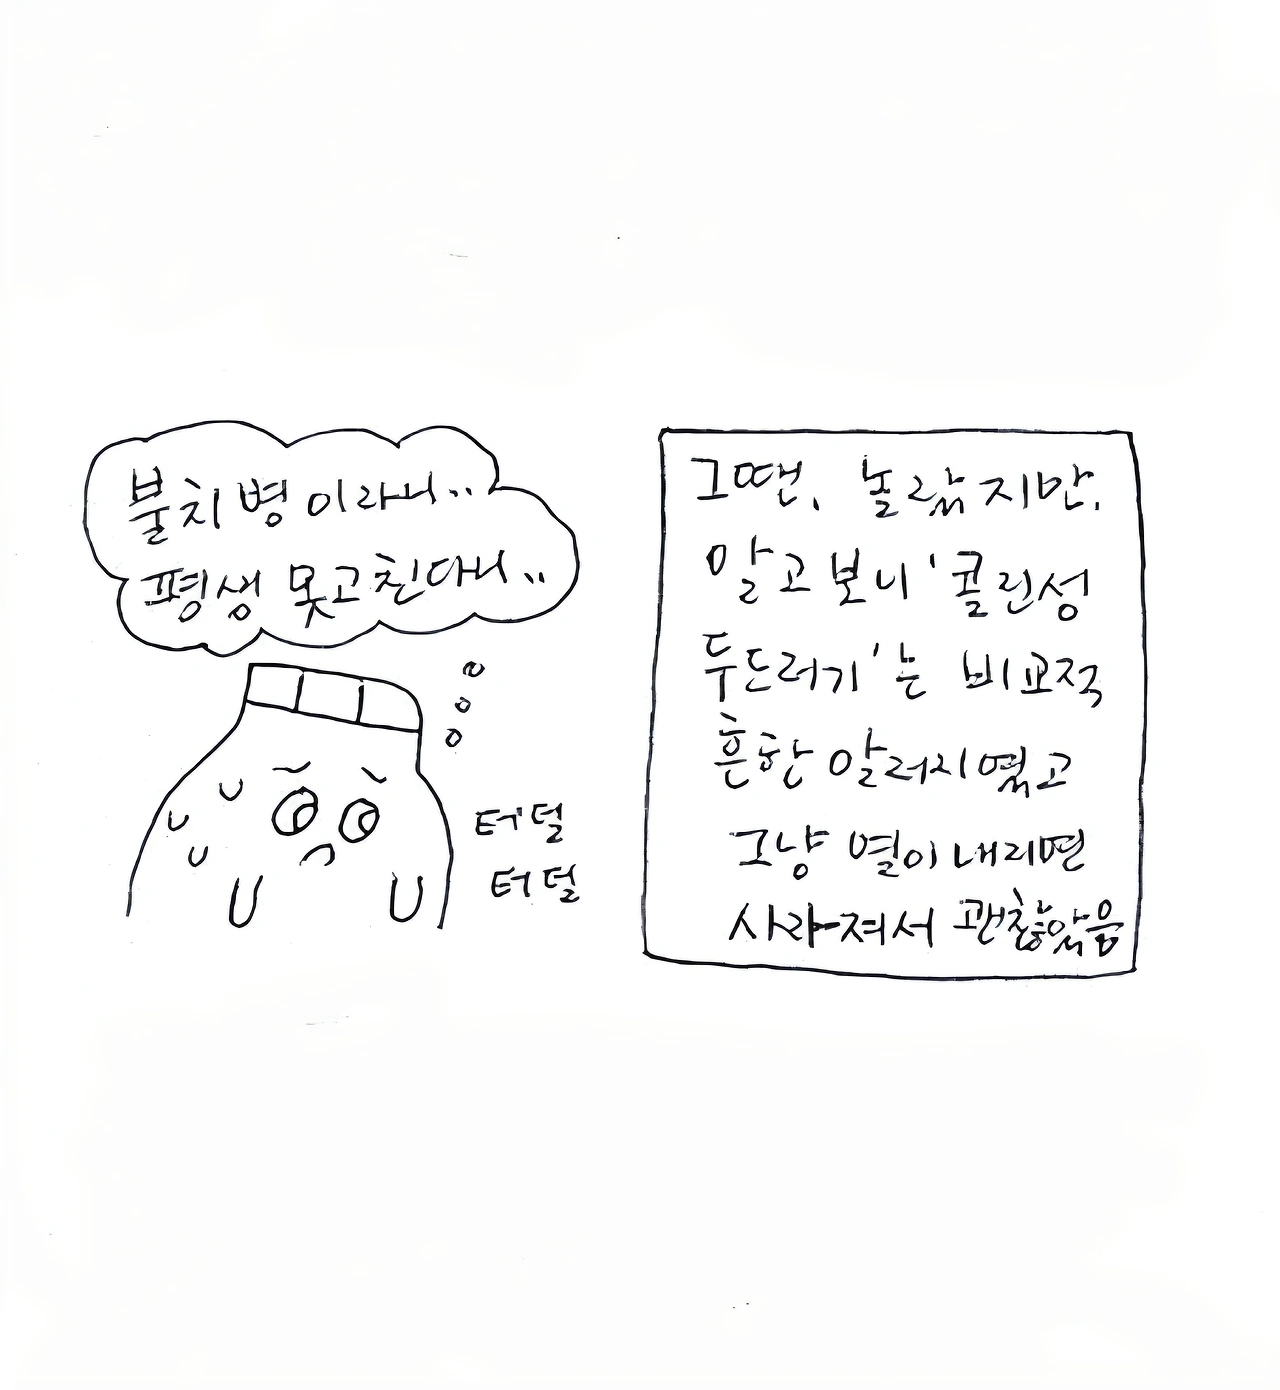 불치병이라니..
평생 못고친다니..
터덜
터덜
그땐, 놀랐지만,
알고보니 '콜린성
두드러기'는 비교적
흔한 알러지였고
그냥 열이 내리면
사라져서 괜찮았음